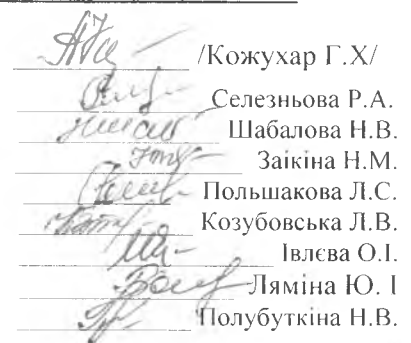 /Кожухар Г.Х/
Селезньова Р.А.
Шабалова Н.В.
Заікіна Н.М.
Польшакова Л.С.
Козубовська Л.В.
Івлєва О.І.
Ляміна Ю. І
Полубуткіна Н.В.